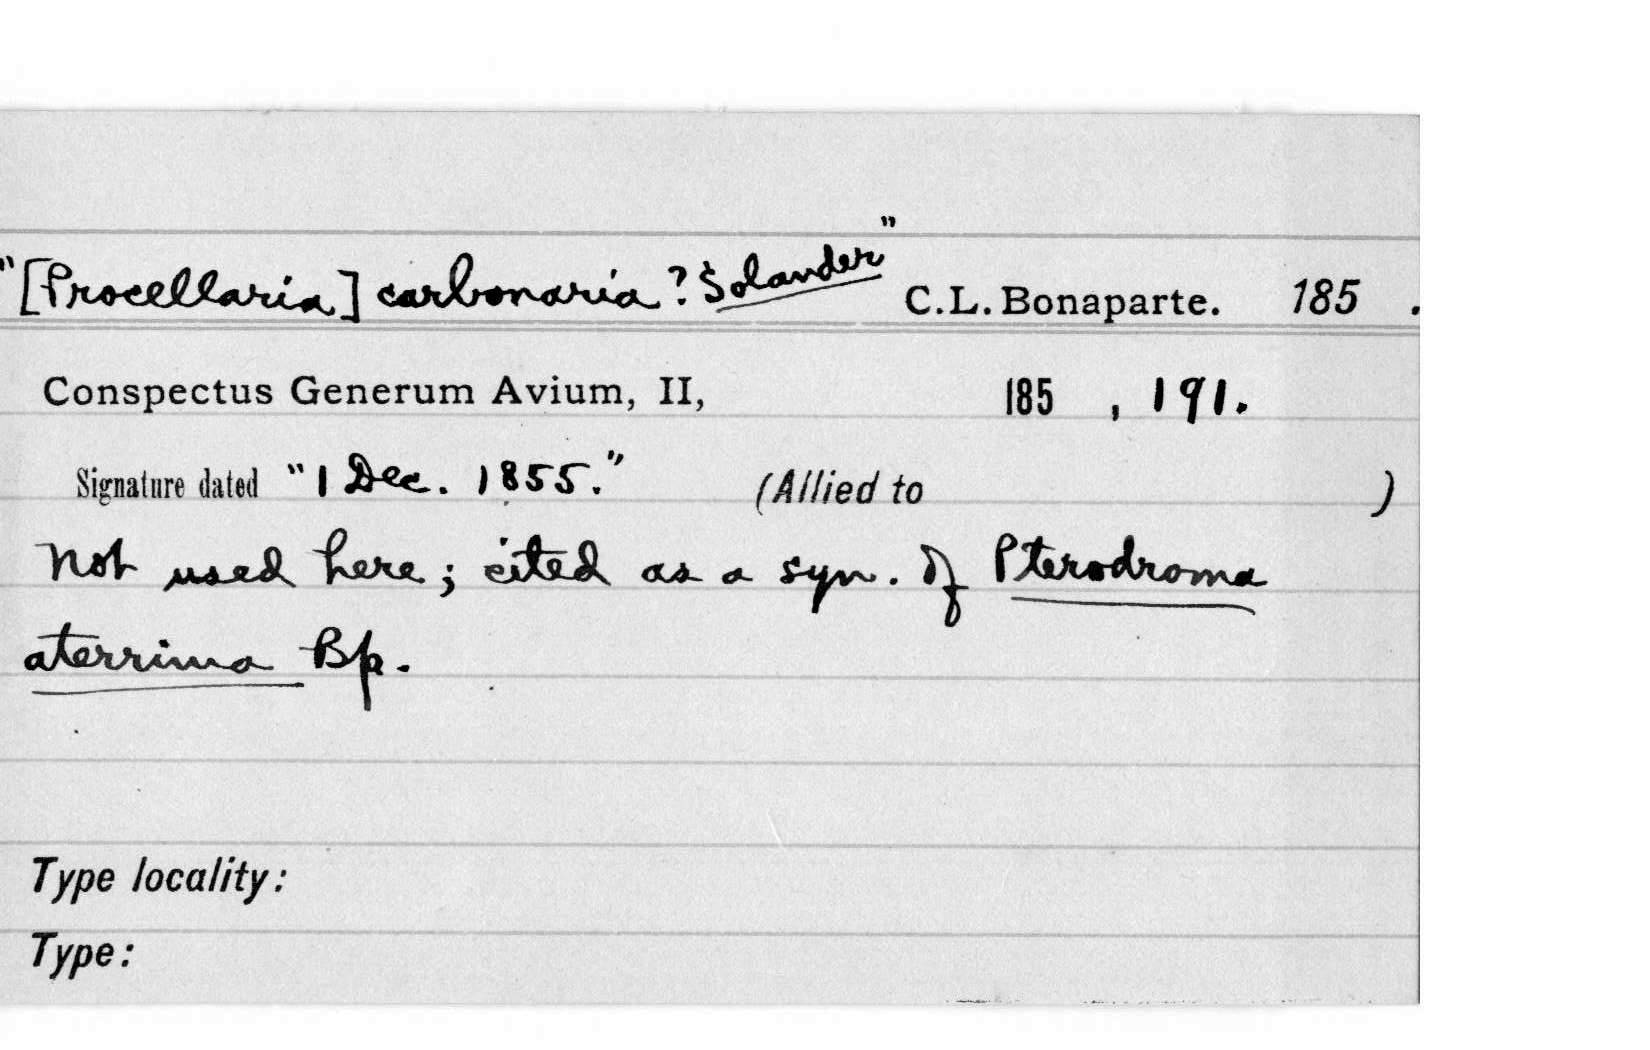 "[Procellaria] carbonaria ? Solander" C.L. Bonaparte. 185 .
Conspectus Generum Avium, II, 185 , 191.
Signature dated "1 Dec. 1855." (Allied to )
Not used here; cited as a syn. of Pterodroma
aterrima Bp.
Type locality:
Type: